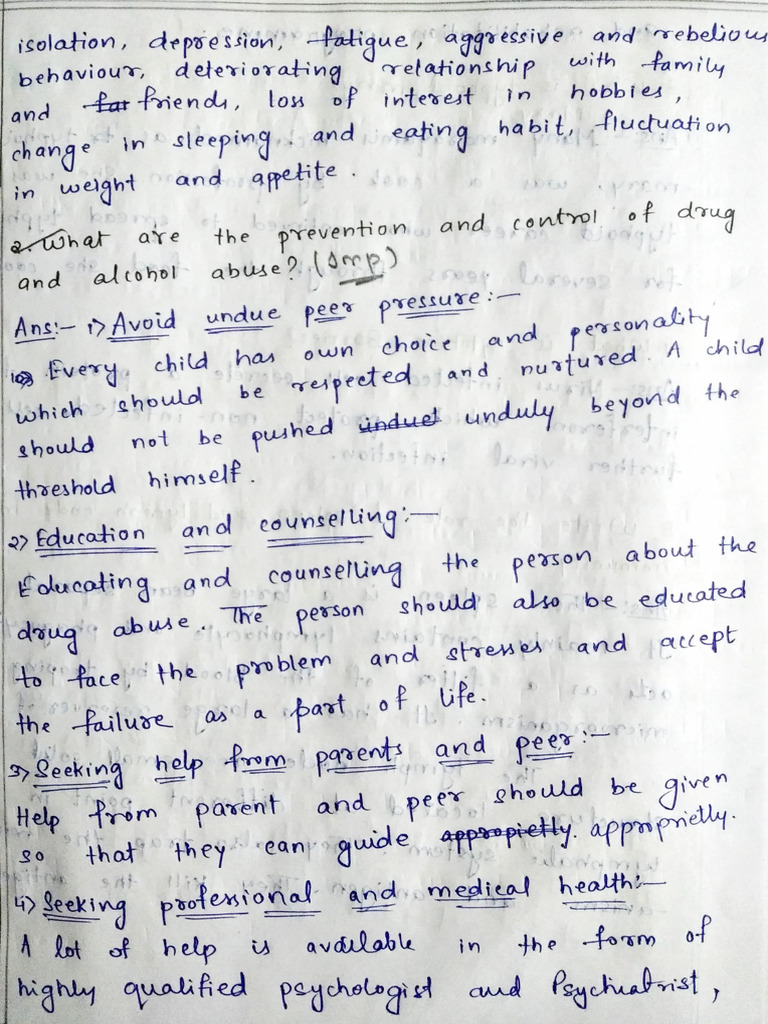 isolation, depression, fatigue, aggressive and rebelious
behaviour, deteriorating relationship with family
and far friends, loss of interest in hobbies,
change in sleeping and eating habit, fluctuation
in weight and appetite.
2. What are the prevention and control of drug
and alcohol abuse? (Imp)
Ans:- 1) Avoid undue peer pressure:-
Every child has own choice and personality
which should be respected and nurtured. A child
should not be pushed induet unduly beyond the
threshold himself.
2) Education and counselling:-
Educating and counselling the person about the
drug abuse. The person should also be educated
to face, the problem and stresses and accept
the failure as a part of life.
3) Seeking help from parents and peer:-
Help from parent and peer should be given
so that they can guide appropietly. approprietly.
4) Seeking professional and medical health:-
A lot of help is available in the form of
highly qualified psychologist and Psychiatrist,